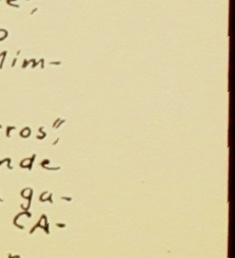 e,
o
lim-
ros",
nde
ga-
CA-